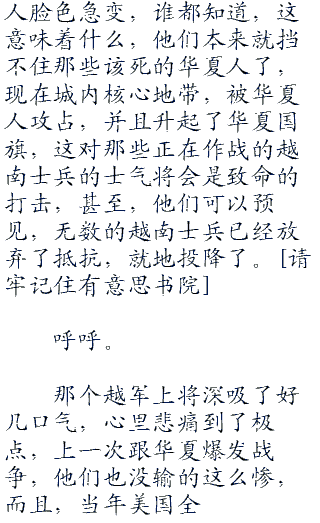 人脸色急变，谁都知道，这
意味着什么，他们本来就挡
不住那些该死的华夏人了，
现在城内核心地带，被华夏
人攻占，并且升起了华夏国
旗，这对那些正在作战的越
南士兵的士气将会是致命的
打击，甚至，他们可以预
见，无数的越南士兵已经放
弃了抵抗，就地投降了。[请
牢记住有意思书院]
呼呼。
那个越军上将深吸了好
几口气，心里悲痛到了极
点，上一次跟华夏爆发战
争，他们也没输的这么惨，
而且，当年美国全